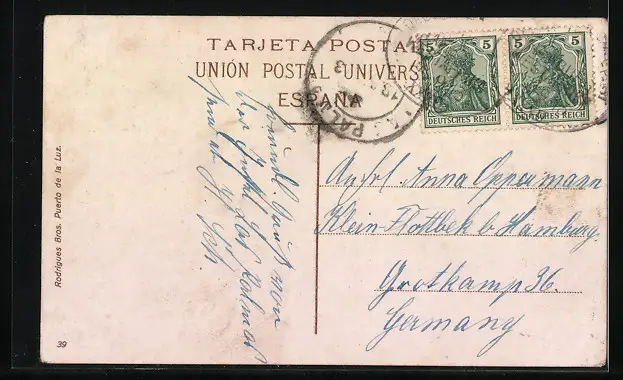 TARJETA POSTAL
UNIÓN POSTAL UNIVERS
ESPAÑA
5 5
5 5
DEUTSCHES REICH
DEUTSCHES REICH
PALMAS
Rodrigues Bros. Puerto de la Luz.
39
freundl. Gruß von
Las Palmas
Anna Oppermann
Klein-Flottbek b. Hamburg.
Grotkamp 36.
Germany